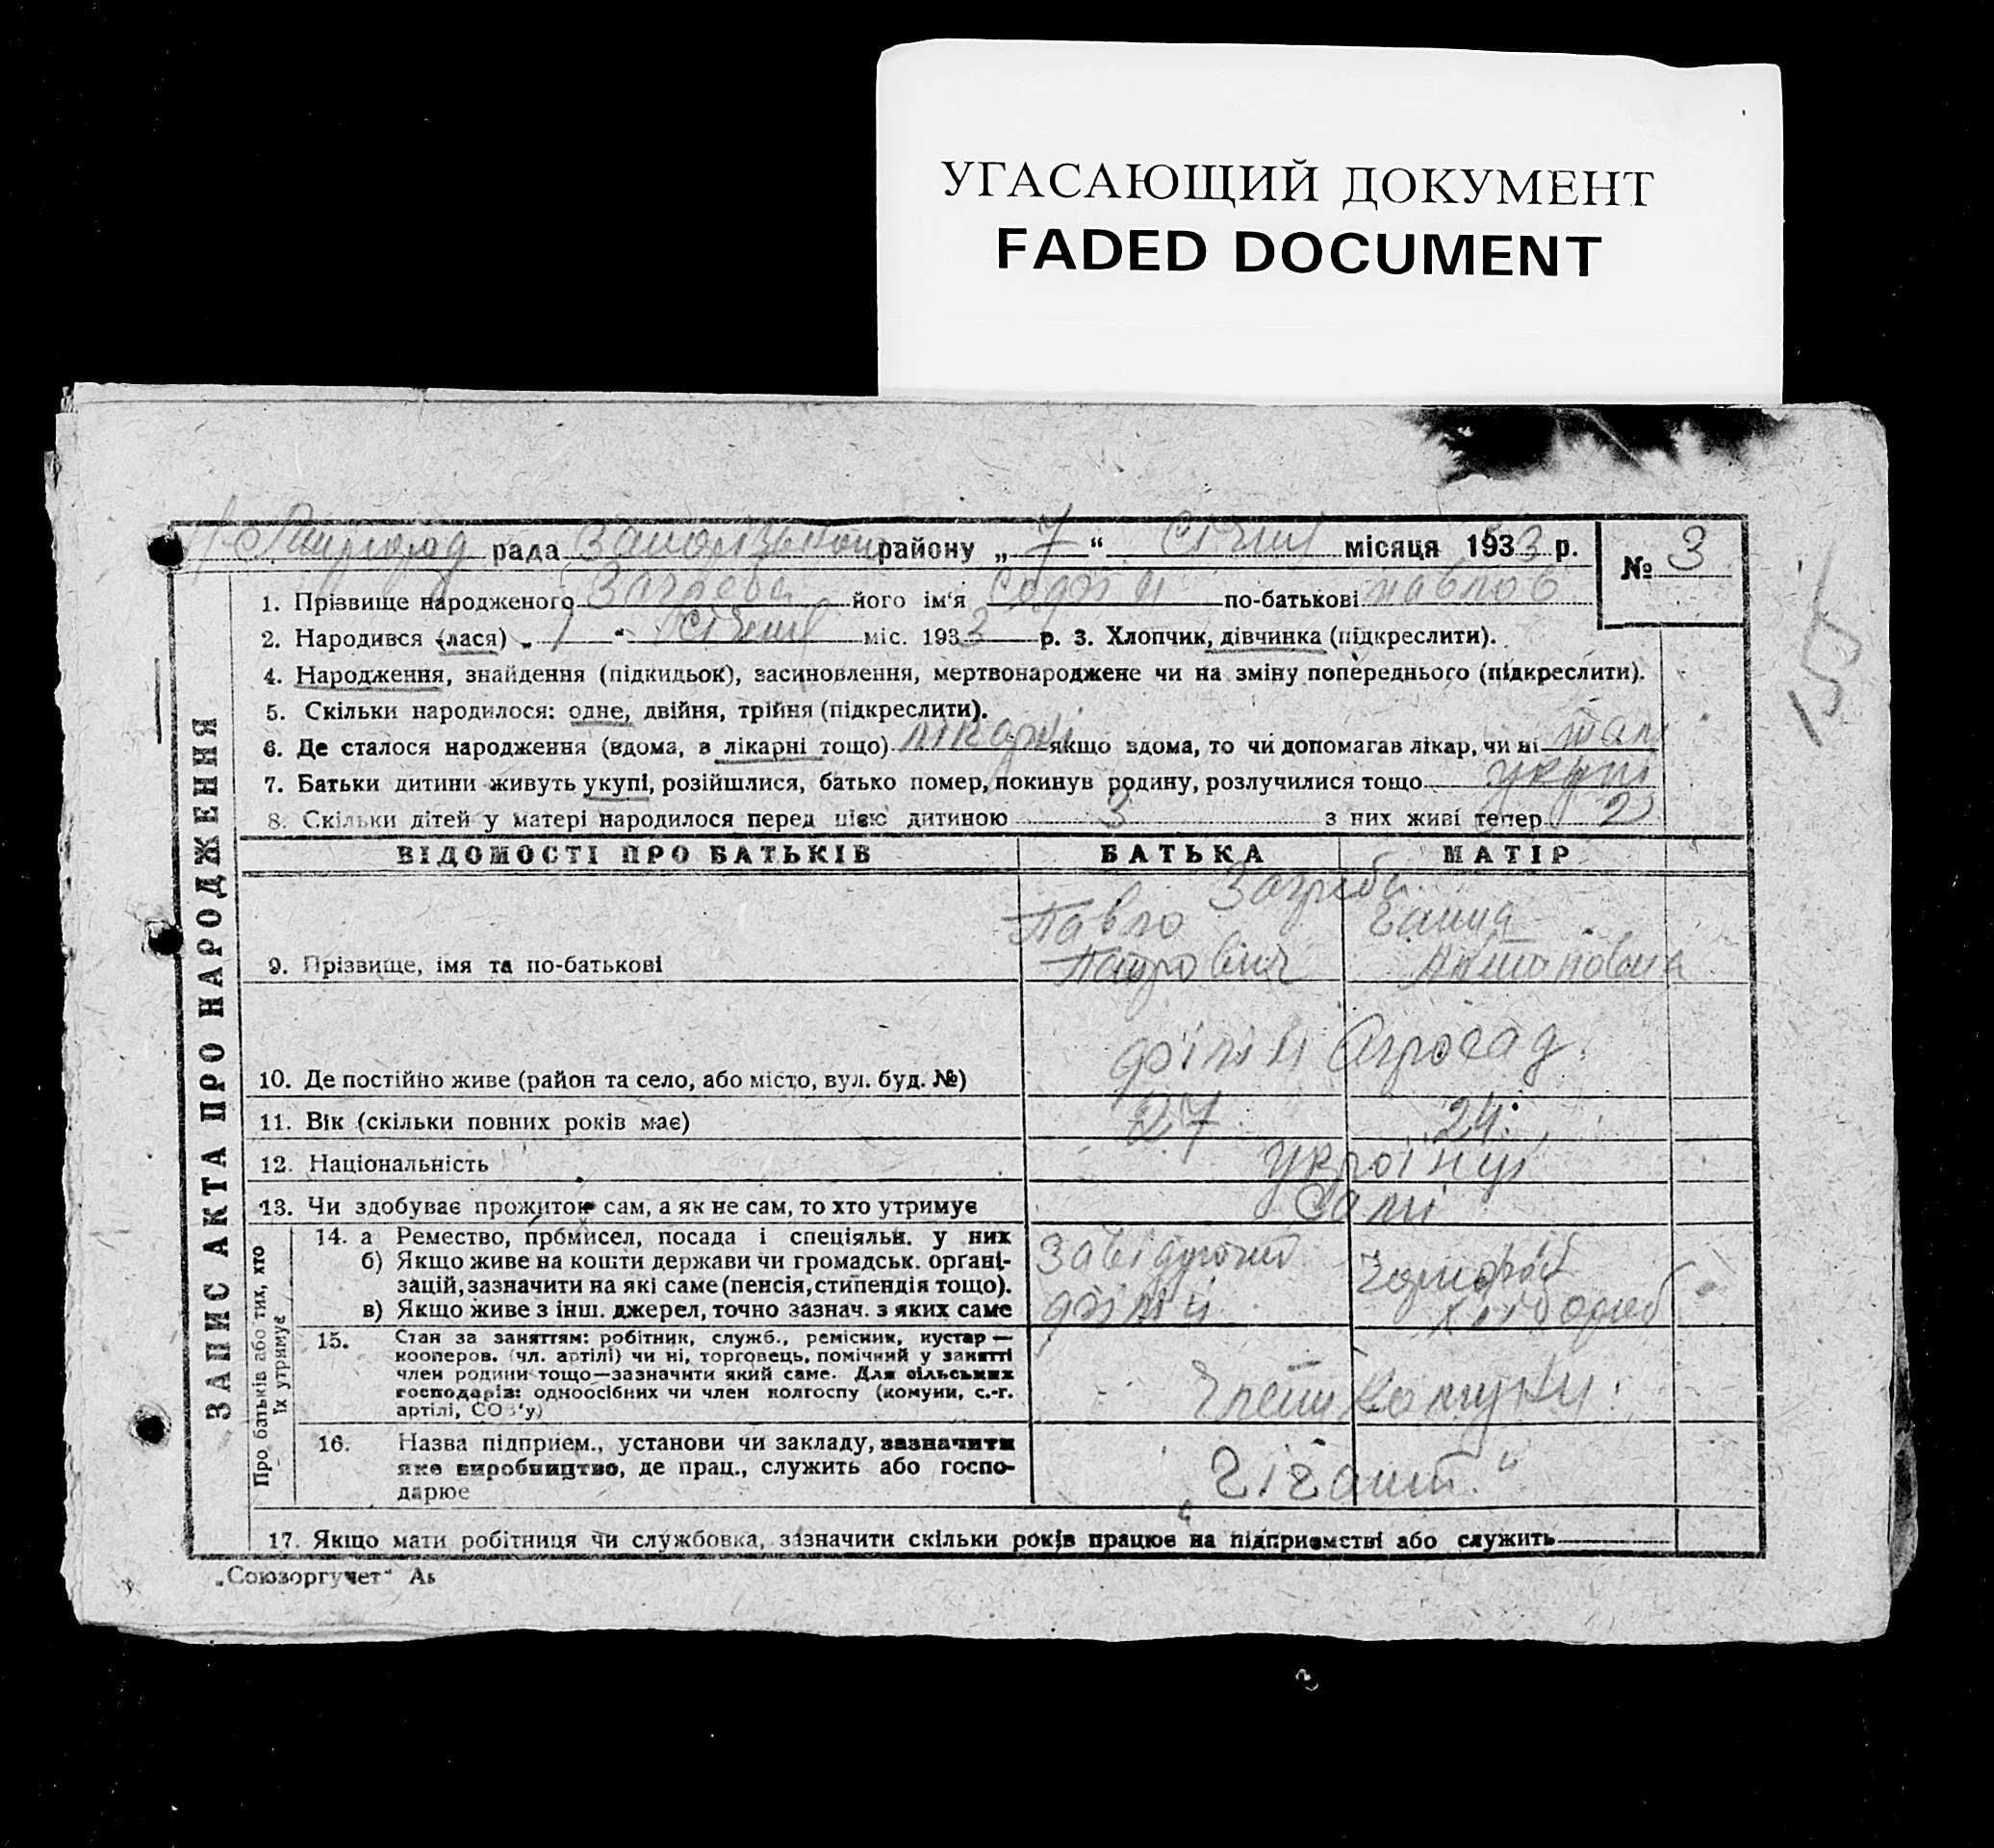 УГАСАЮЩИЙ ДОКУМЕНТ
FADED DOCUMENT
рада району „ 7 “ Січня місяця 1933 р. № 3
1. Прізвище народженого Загреба його ім‘я Софія по-батькові Павлов
2. Народився (лася) „ 1 “ Січня міс. 1933 р. 3. Хлопчик, дівчинка (підкреслити).
4. Народження, знайдення (підкидьок), засиновлення, мертвонароджене чи на зміну попереднього (підкреслити).
5. Скільки народилося: одне, двійня, трійня (підкреслити).
6. Де сталося народження (вдома, в лікарні тощо) лікарні якщо вдома, то чи допомагав лікар, чи ні так
7. Батьки дитини живуть укупі, розійшлися, батько помер, покинув родину, розлучилися тощо укупі
8. Скільки дітей у матері народилося перед цією дитиною 3 з них живі тепер 2
ВІДОМОСТІ ПРО БАТЬКІВ БАТЬКА МАТІР
Загреба
Павло Ганна
9. Прізвище, імя та по-батькові Петрович
10. Де постійно живе (район та село, або місто, вул. буд. №)
11. Вік (скільки повних років має) 27 24
12. Національність українці
13. Чи здобуває прожиток сам, а як не сам, то хто утримує Самі
14. а Ремество, промисел, посада і спеціяльн. у них
б) Якщо живе на кошти держави чи громадськ. орґані-
зацій, зазначити на які саме (пенсія, стипендія тощо).
в) Якщо живе з інш. джерел, точно зазнач. з яких саме
Завідуючий
філії
хлібороб
15. Стан за заняттям: робітник, служб., ремісник, кустар —
кооперов. (чл. артілі) чи ні, торговець, помічний у занятті
член родини тощо—зазначити який саме. Для сільських
господарів: одноосібних чи член колгоспу (комуни, с.-г.
артілі, СОЗ‘у)
Члени Комуни
16. Назва підприєм., установи чи закладу, зазначити
яке виробництво, де прац., служить або госпо-
дарює
„Гігант“
17. Якщо мати робітниця чи службовка, зазначити скільки років працює на підприємстві або служить
„Союзоргучет“
ЗАПИС АКТА ПРО НАРОДЖЕННЯ
Про батьків або тих, хто
їх утримує